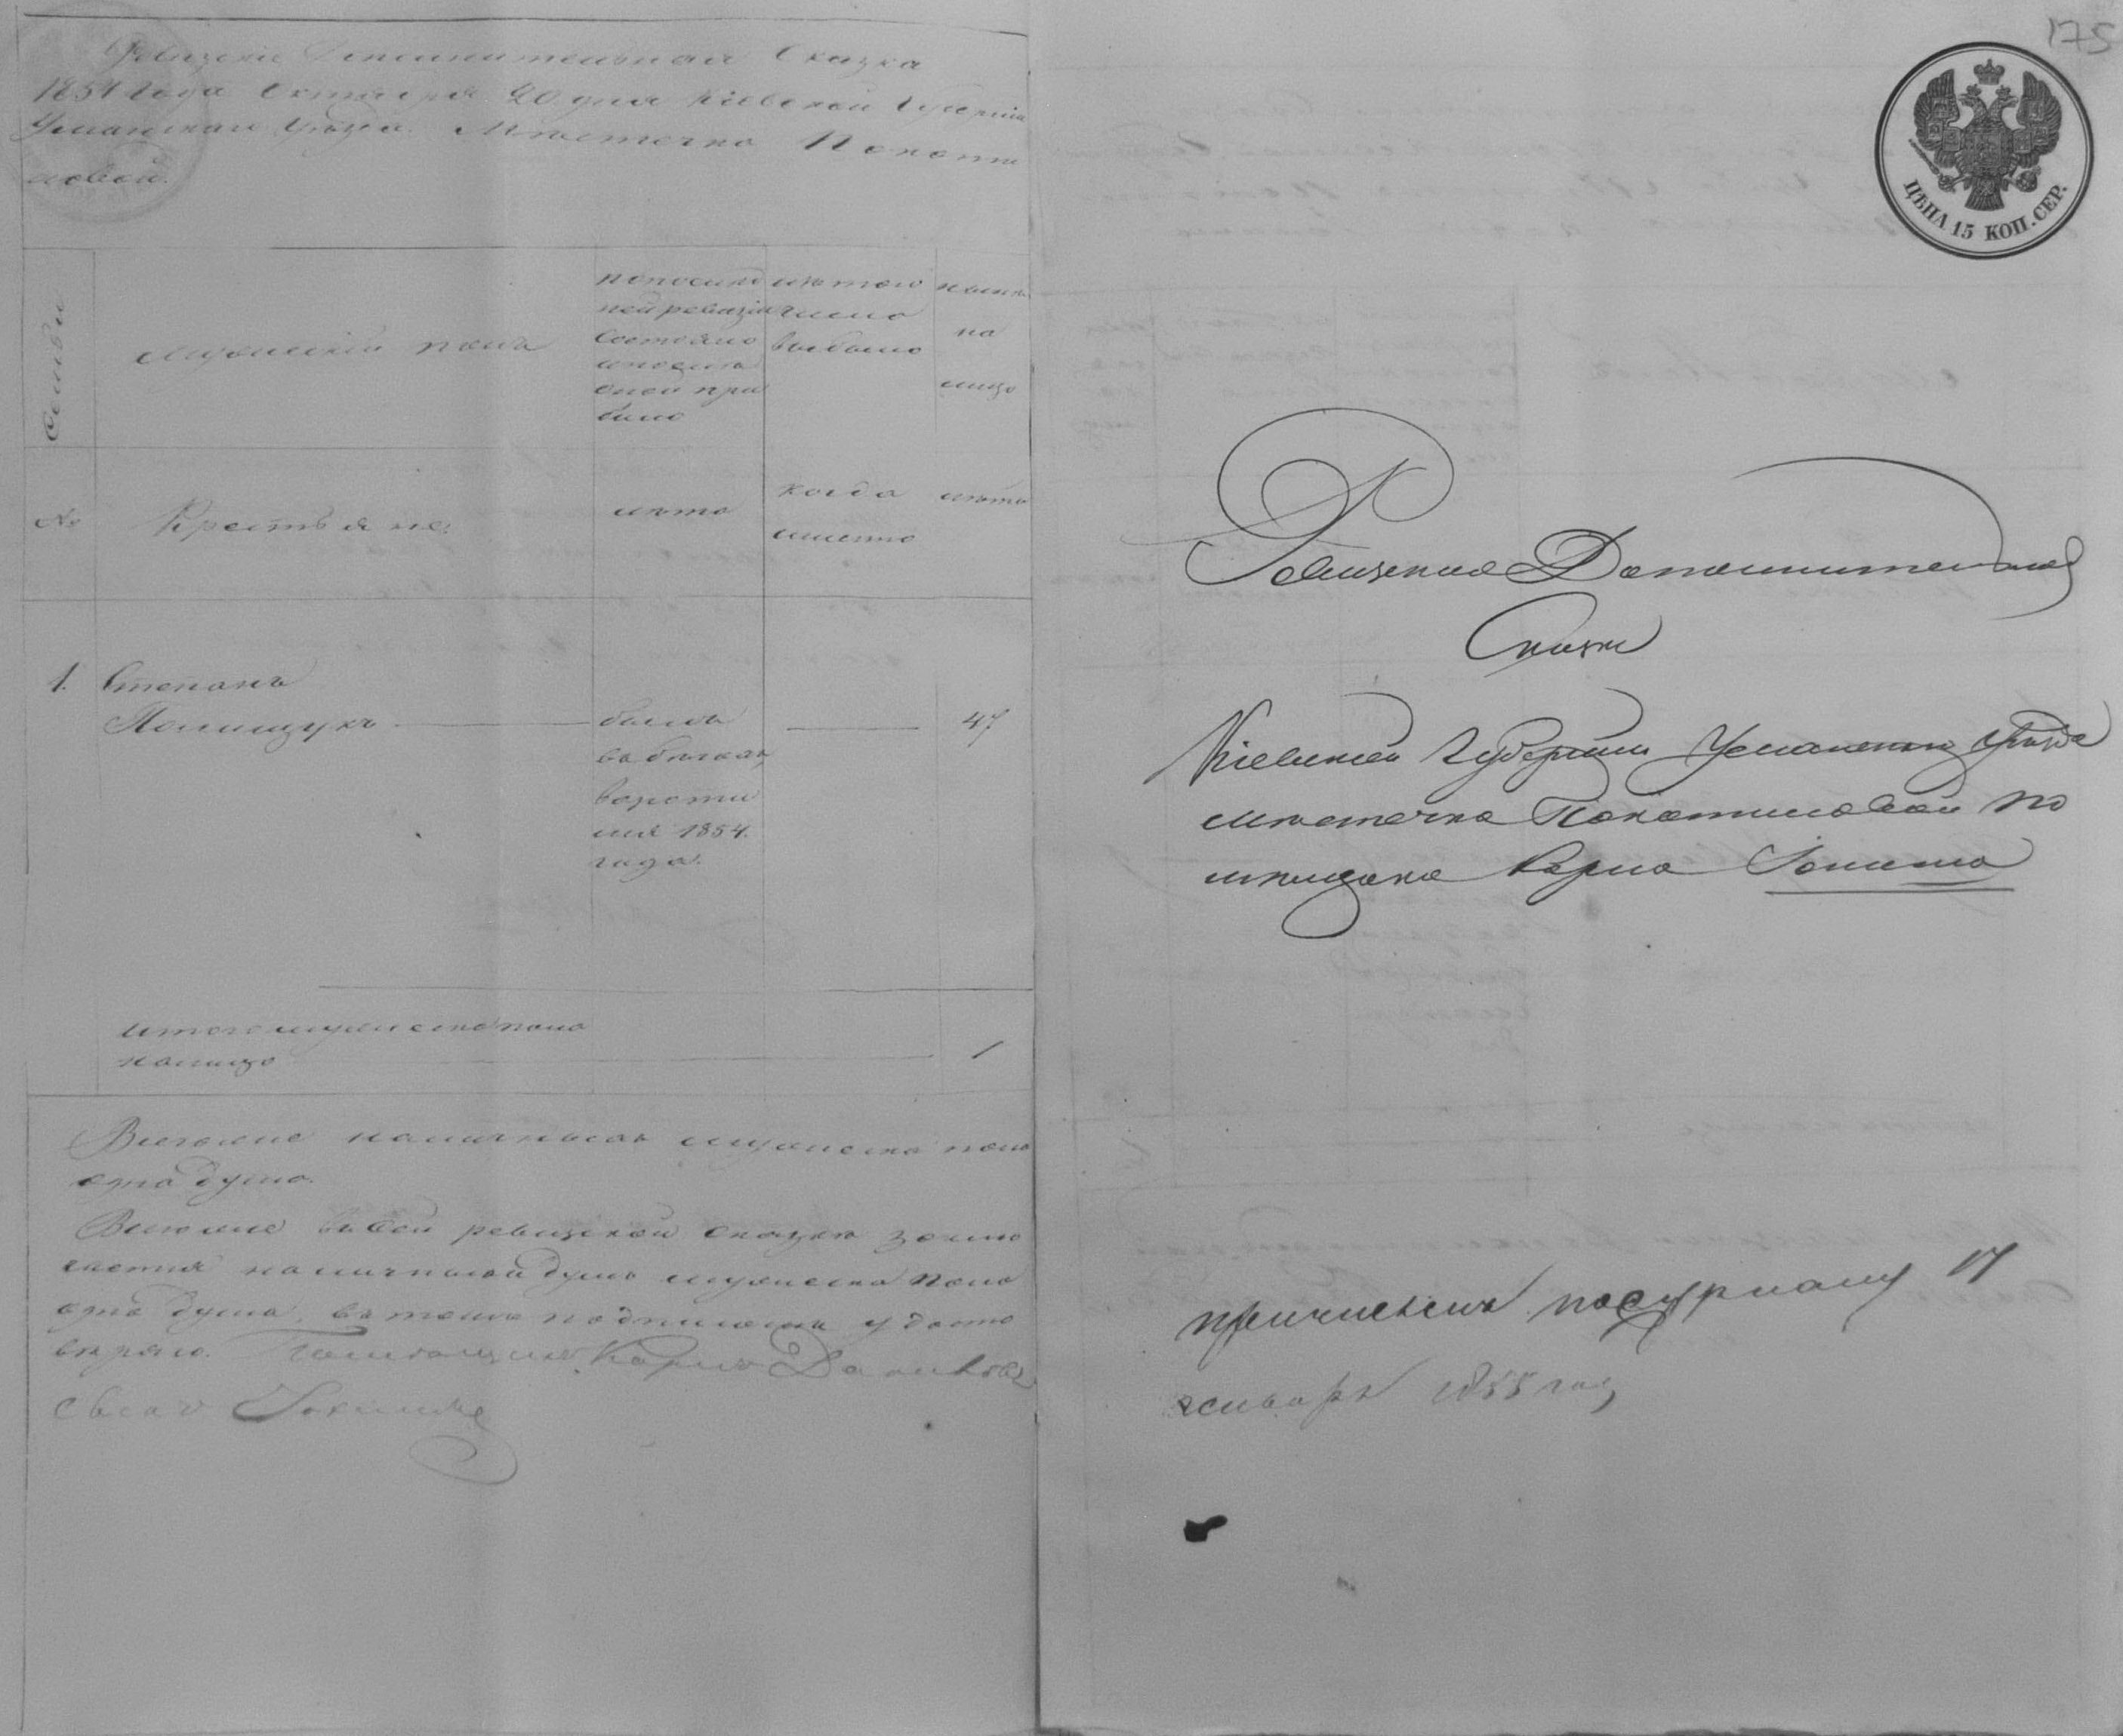 Ревизская Дополнительная Сказка
1854 года Октября 20 дня Кіевской Губерніи
Уманскаго Уѣзда Мѣстечка Покоти
ловой.
Семьи
Мужескій полъ
по послѣд
ней ревизіи
состояло
и послѣ
оной при
было
изъ того
числа
выбыло
нынѣ
на
лицо
№
Крестьяне:
лѣта
когда
именно
лѣта
1.
Степанъ
Полищукъ
былъ
въ бѣгахъ
вороти
лся 1854.
года.
47
Итого мужеска пола
налицо
1
Вообще наличныхъ мужеска пола
одна душа.
Вообще въ сей ревизской сказкѣ заклю
чается наличныхъ душъ мужеска пола
одна душа, въ томъ подписомъ удосто
вѣряю. Помѣщикъ Карлъ
175
ЦѢНА 15 КОП. СЕР.
Ревизская Дополнительная
Сказка
Кіевской Губерніи Уманскаго уѣзда
мѣстечка Покотиловой по
мѣщика Карла
причислены по журналу 17
января 1855 года